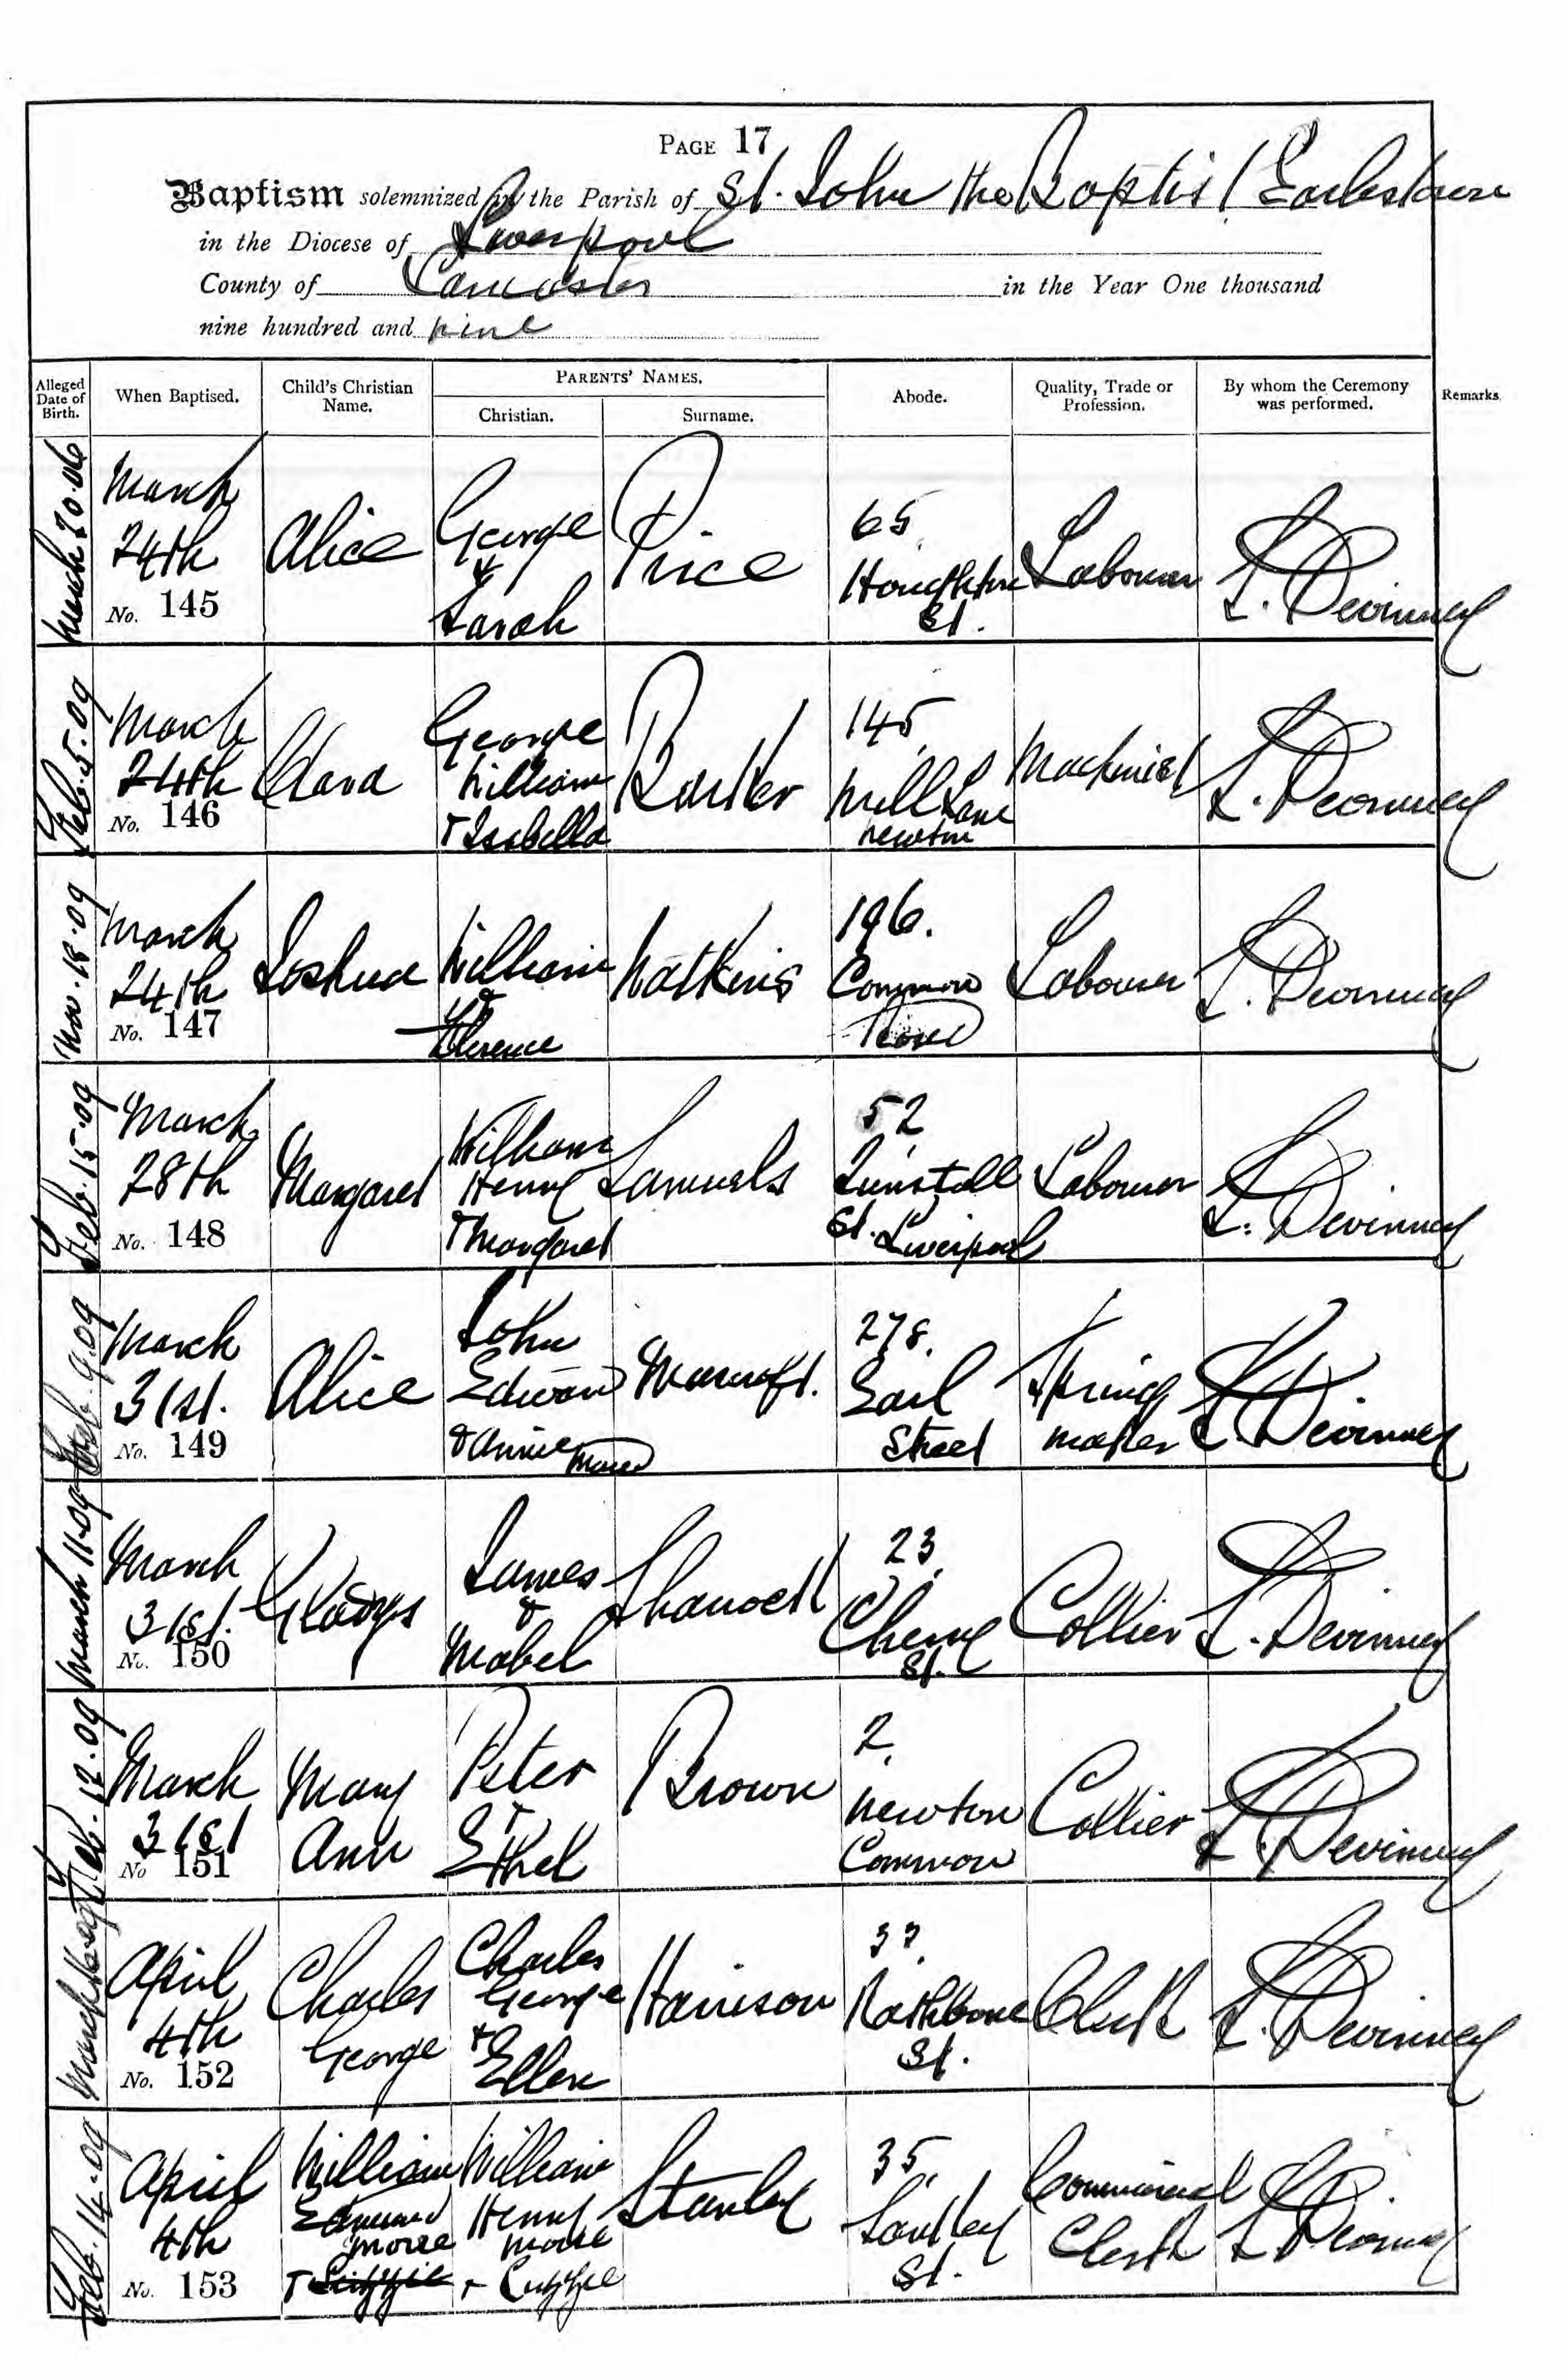 PAGE 17
Baptism solemnized in the Parish of St. John the Baptist Earlestown
in the Diocese of Liverpool
County of Lancaster in the Year One thousand
nine hundred and nine
Alleged Date of Birth.
When Baptised.
Child's Christian Name.
PARENTS' NAMES.
Christian.
Surname.
Abode.
Quality, Trade or Profession.
By whom the Ceremony was performed.
Remarks.
March 20.06
March
24th
No. 145
Alice
George
&
Sarah
Price
65
Houghton
St.
Labourer
L. Devinney
Feb. 5. 09
March
24th
No. 146
Clara
George
William
+ Isabella
145
Mill Lane
Newton
Machinist
L. Devinney
18.09
March
24th
No. 147
Joshua
William
&
Florence
Watkins
196.
Common
Road
Labourer
L. Devinney
Feb. 15.09
March
28th
No. 148
Margaret
William
Henry
+ Margaret
Samuels
52
Tunstall
St. Liverpool
Labourer
L. Devinney
Feb. 9.09
March
31st.
No. 149
Alice
John
Edward
& Annie
278.
Earl
Street
Spring
maker
L. Devinney
March 11.09
March
31st.
No. 150
Gladys
James
&
Mabel
23.
Cherry
St.
Collier
L. Devinney
Feb. 12.09
March
31st
No 151
Mary
Ann
Peter
+
Ethel
Brown
2.
Newton
Common
Collier
L. Devinney
March
April
4th
No. 152
Charles
George
Charles
George
+
Ellen
Harrison
Rathbone
St.
Clerk
L. Devinney
Feb. 14.09
April
4th
No. 153
William
Edmund
Morse
+ Lizzie
William
Henry
Morse
+ Lizzie
Stanley
35.
St.
Commercial
Clerk
L. Devinney